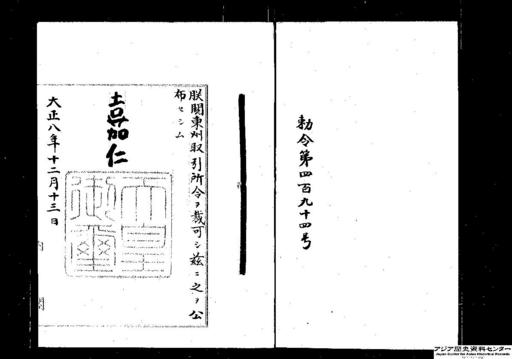 勅令第四百九十四号
朕関東州取引所令ヲ裁可シ茲ニ之ヲ公
布セシム
嘉仁
天皇御璽
大正八年十二月十三日
内閣
アジア歴史資料センター
Japan Center for Asian Historical Records